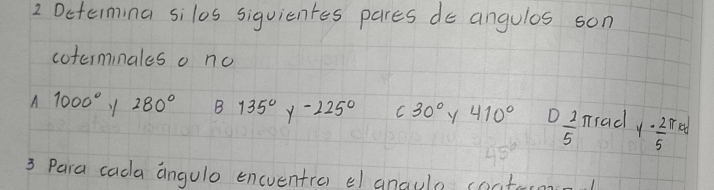 2 Determina si los siguientes pares de angulos son
coterminales o no
A 1000° y 280° B 135° y -225° C 30° y 410° D 2/5 πrad y -2π/5 rad
3 Para cada ángulo encuentra el angulo